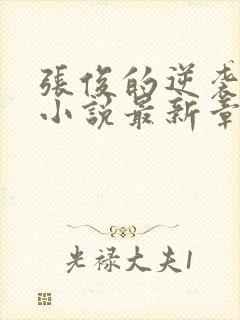 張俊的逆袭
小說最新章
光禄大夫1